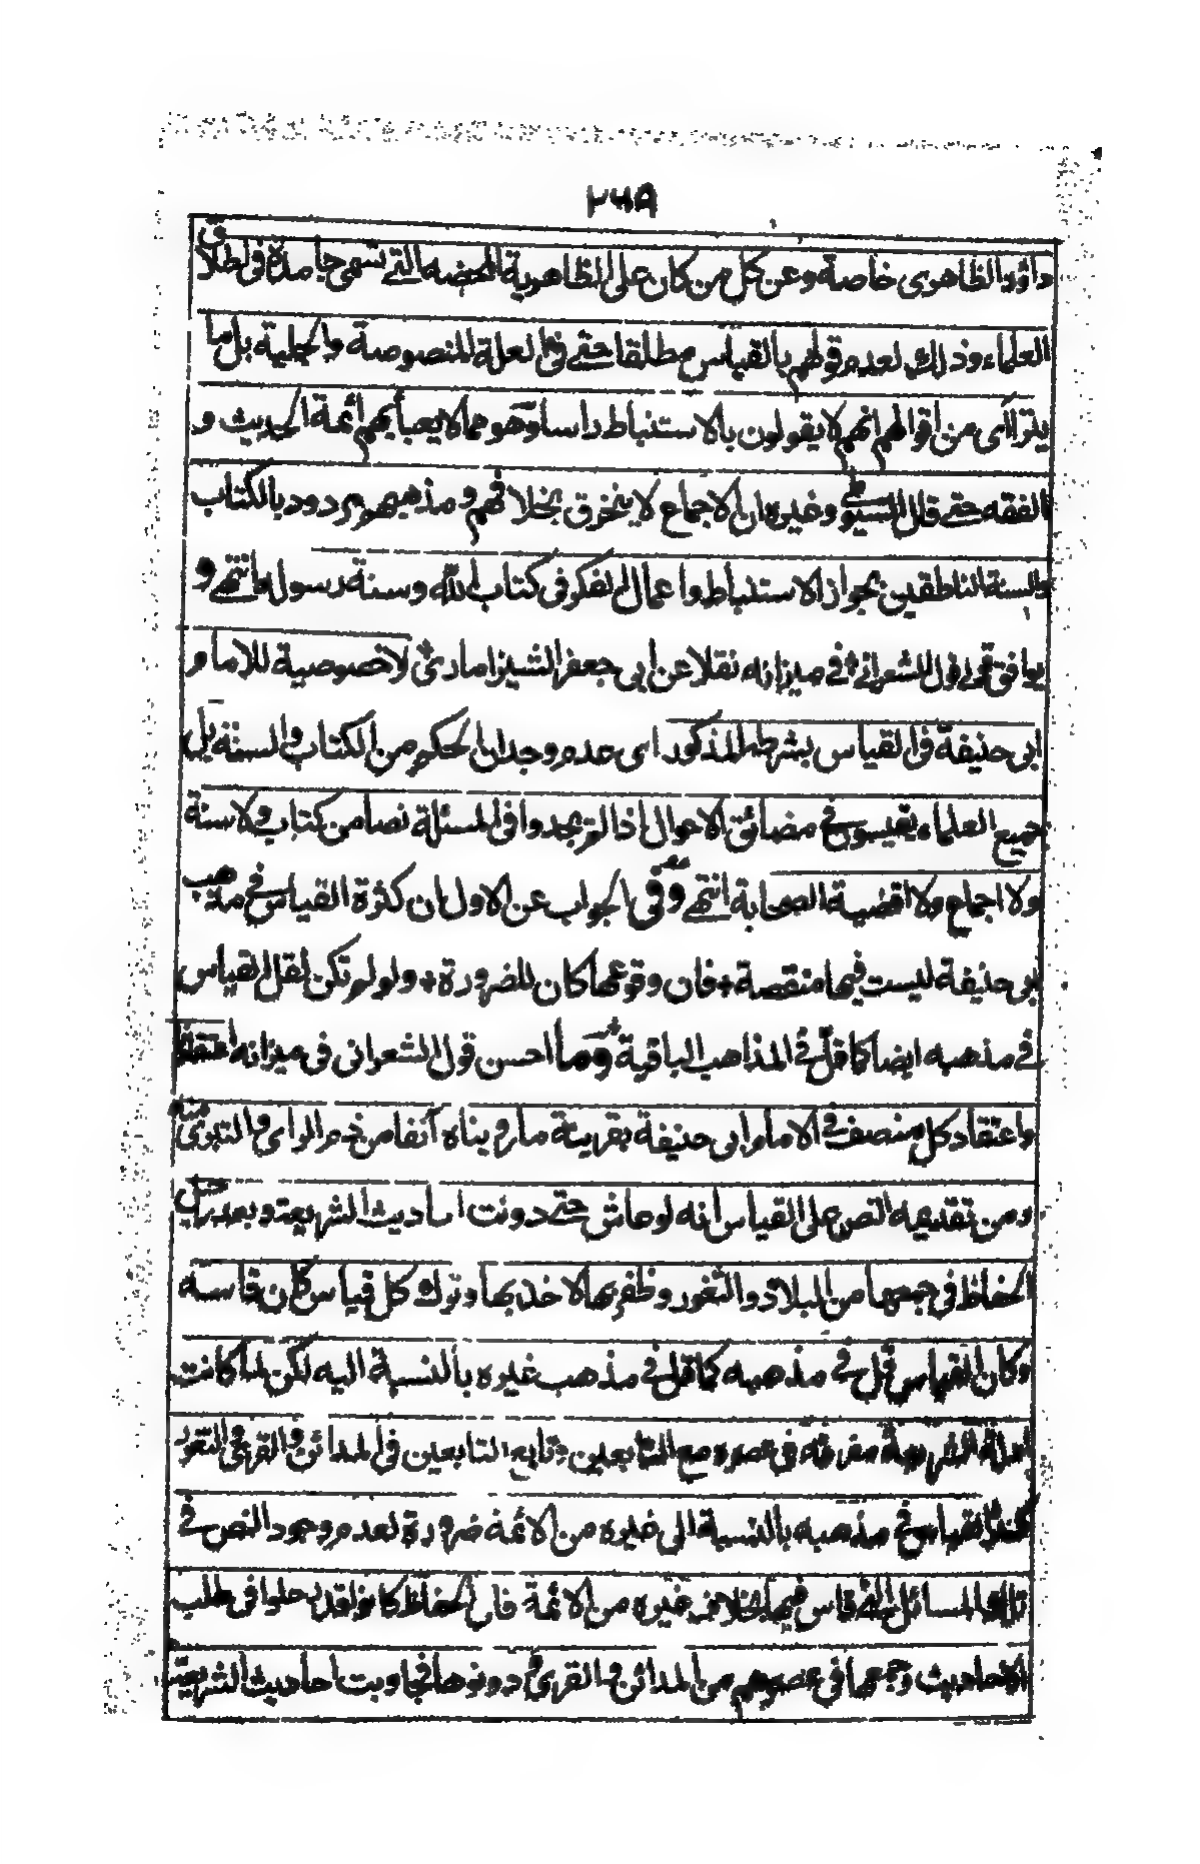 ٢٦٩
داؤد الظاهری خاصة وعن کل من کان علی الظاهریة المحضه التے تسمی جامدة فی اطلاق
العلماء وذلك لعدم قولهم بالقیاس مطلقا حتے فی العلة المنصوصة والجلیة بل ما
یتراآی من اقوالهم انهم لا یقولون بالاستنباط راسا وهو مما لا یعبأ بهم أئمة الحدیث و
الفقه حتے قال السیوطے وغیره ان الاجماع لا ینخرق بخلافهم ومذهبهم مردود بالکتاب
والسنة الناطقین بجواز الاستنباط واعمال الفکر فی کتاب الله وسنة رسوله انتهے و
یوافق قوله قول الشعرانے فے میزانه نقلا عن ابی جعفر الشیزاماری لا خصوصیة للامام
ابی حنیفة فی القیاس بشرطه المذکور ای عدم وجدان الحکم من الکتاب والسنة بل
جمیع العلماء یقیسون فے مضائق الاحوال اذا لم یجدوا فی المسئلة نصا من کتاب ولا سنة
ولا اجماع ولا اقضیة الصحابة انتهے وفی الجواب عن الاول ان کثرة القیاس فے مذهب
ابی حنیفة لیست فیها منقصة فان وقوعها کان للضرورة ولو لم تکن لقل القیاس
فے مذهبه ایضا کما قل فے المذاهب الباقیة وما احسن قول الشعرانی فی میزانه اعتقادنا
واعتقاد کل منصف فے الامام ابی حنیفة بقرینة ما رویناه آنفا من ذم الرای والتبری منه
ومن تقدیمه النص علی القیاس انه لو عاش حتے دونت احادیث الشریعة وبعد رحیل
الحفاظ فی جمعها من البلاد والثغور وظفر بها لاخذ بها وترك کل قیاس کان قاسه
وکان القیاس قل فے مذهبه کما قل فے مذهب غیره بالنسبة الیه لکن لما کانت
ادلة الشریعة مفرقة فی عصره مع التابعین وتابع التابعین فی المدائن والقری والثغور
کثر القیاس فے مذهبه بالنسبة الی غیره من الائمة ضرورة لعدم وجود النص فے
تلك المسائل التے قاس فیها بخلاف غیره من الائمة فان الحفاظ کانوا قد رحلوا فی طلب
الاحادیث وجمعها فی عصرهم من المدائن والقری ودونوها فجاوبت احادیث الشریعة